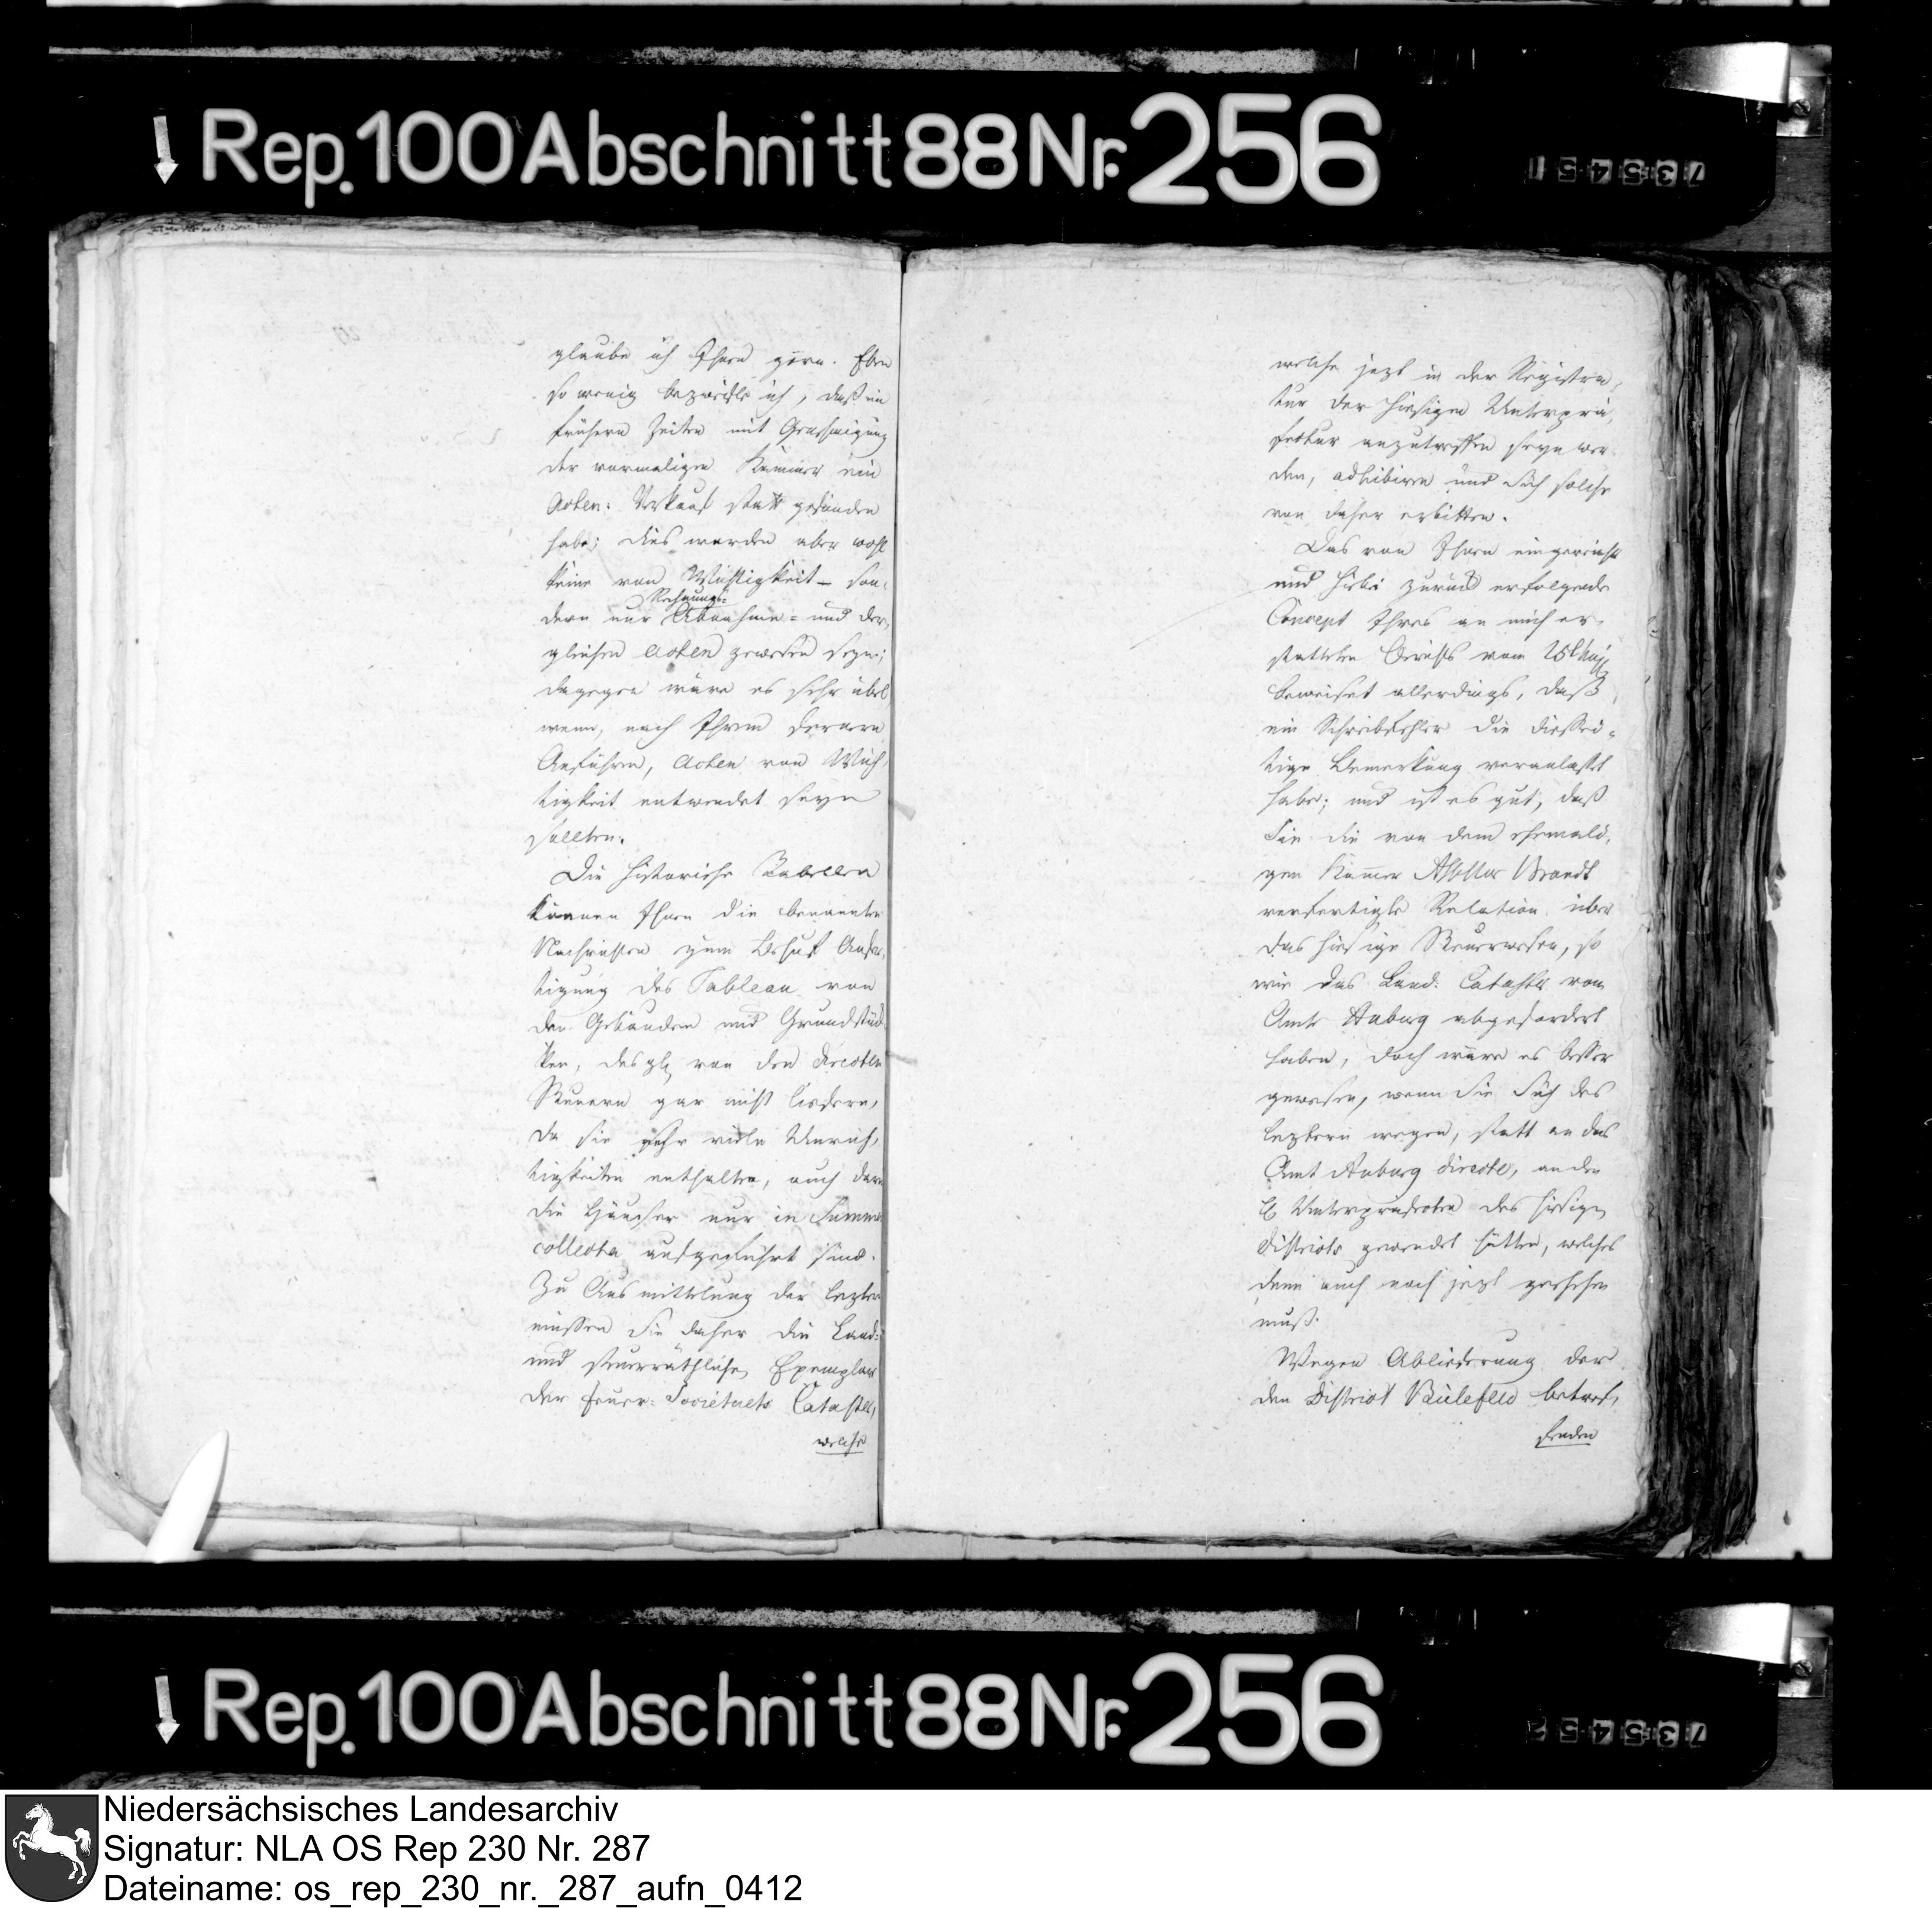 Rep. 100 Abschnitt 88 Nr. 256
735451
glaube ich Ihnen gern. Eben
so wenig bezweifle ich, daß in
frühern Zeiten mit Genehmigung
der vormaligen Kammer ein
Acten: Verkauf statt gefunden
habe; dies werden aber wohl
keine von Wichtigkeit – son,
Rechnungs=
dern nur Abnahme= und der,
gleichen Acten gewesen seyn;
dagegen wäre es sehr übel
wenn, nach Ihrem fernern
Anführen, Acten von Wich,
tigkeit entwendet seyn
sollten.
Die historische Tabellen
können Ihnen die benannten
Nachrichten zum Behuf Anfer,
tigung des Tableau von
den Gebäuden und Grundstük
ken, desgl. von den directen
Steuern gar nicht liefern,
da sie sehr viele Unrich,
tigkeiten enthalten, auch darin
die Häuser nur in Summa
collecta aufgeführt sind.
Zu Ausmittelung der leztern
müssen Sie daher die Land=
und steuerräthlichen Exemplare
der Feuer: Societaets Cataster,
welche
welche jezt in der Registra,
tur der hiesigen Unterprä,
fectur anzutreffen seyn wer,
den, adhibiren und sich solche
von daher erbitten.
Das von Ihnen eingereichte
und hiebei zurück erfolgende
Concept Ihres an mich er,
statteten Berichts vom
beweiset allerdings, daß
ein Schreibfehler die diessei=
tige Bemerkung veranlaßt
habe; und ist es gut, daß
Sie die von dem ehemali,
gen Kammer Assessor Brandt
verfertigte Relation über
das hiesige Steuerwesen, so
wie das Land: Cataster vom
Amte Auburg abgefordert
haben, doch wäre es besser
gewesen, wenn Sie Sich des
leztern wegen, statt an das
Amt Auburg directe, an den
H. Unterpraefecten des hiesigen
Districts gewendet hätten, welches
denn auch noch jezt geschehen
muß.
Wegen Ablieferung der
den District Bielefeld betref,
fenden
Rep. 100 Abschnitt 88 Nr. 256
735452
Niedersächsisches Landesarchiv
Signatur: NLA OS Rep 230 Nr. 287
Dateiname: os_rep_230_nr._287_aufn_0412